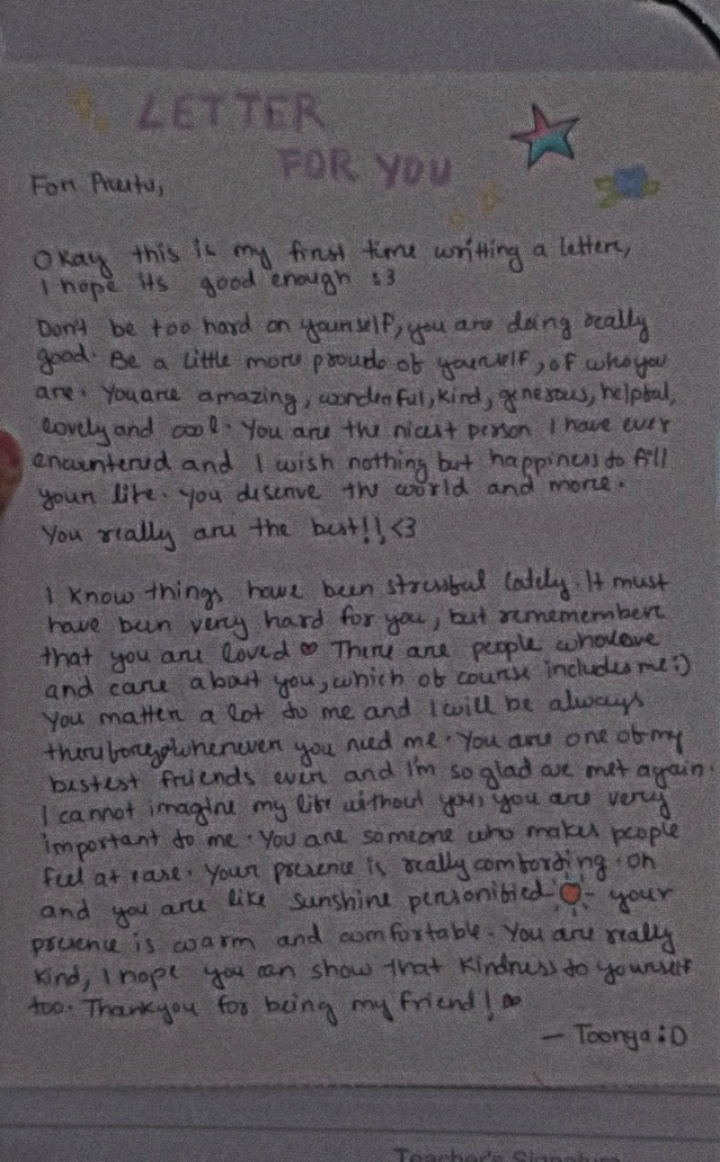 LETTER
FOR YOU
For
Okay this is my first time writting a letter,
I hope its good enough :3
Don't be too hard on yourself, you are doing really
good. Be a little more proude of yourself, of who you
are. You are amazing, wonderful, kind, generous, helpful,
lovely and cool. You are the nicest person I have ever
encountered and I wish nothing but happiness to fill
your life. You deserve the world and more.
You really are the best!! <3
I know things have been stressful lately. It must
have been very hard for you, but rememember
that you are loved ♥ There are people who love
and care about you, which of course includes me :)
You matter a lot to me and I will be always
there for you whenever you need me. You are one of my
bestest friends ever and I'm so glad we met again.
I cannot imagine my life without you, you are very
important to me. You are someone who makes people
feel at ease. Your presence is really comforting. Oh
and you are like sunshine personified - your
presence is warm and comfortable. You are really
kind, I hope you can show that kindness to yourself
too. Thankyou for being my friend! ♥
— Toonga :D
Teacher's Signature